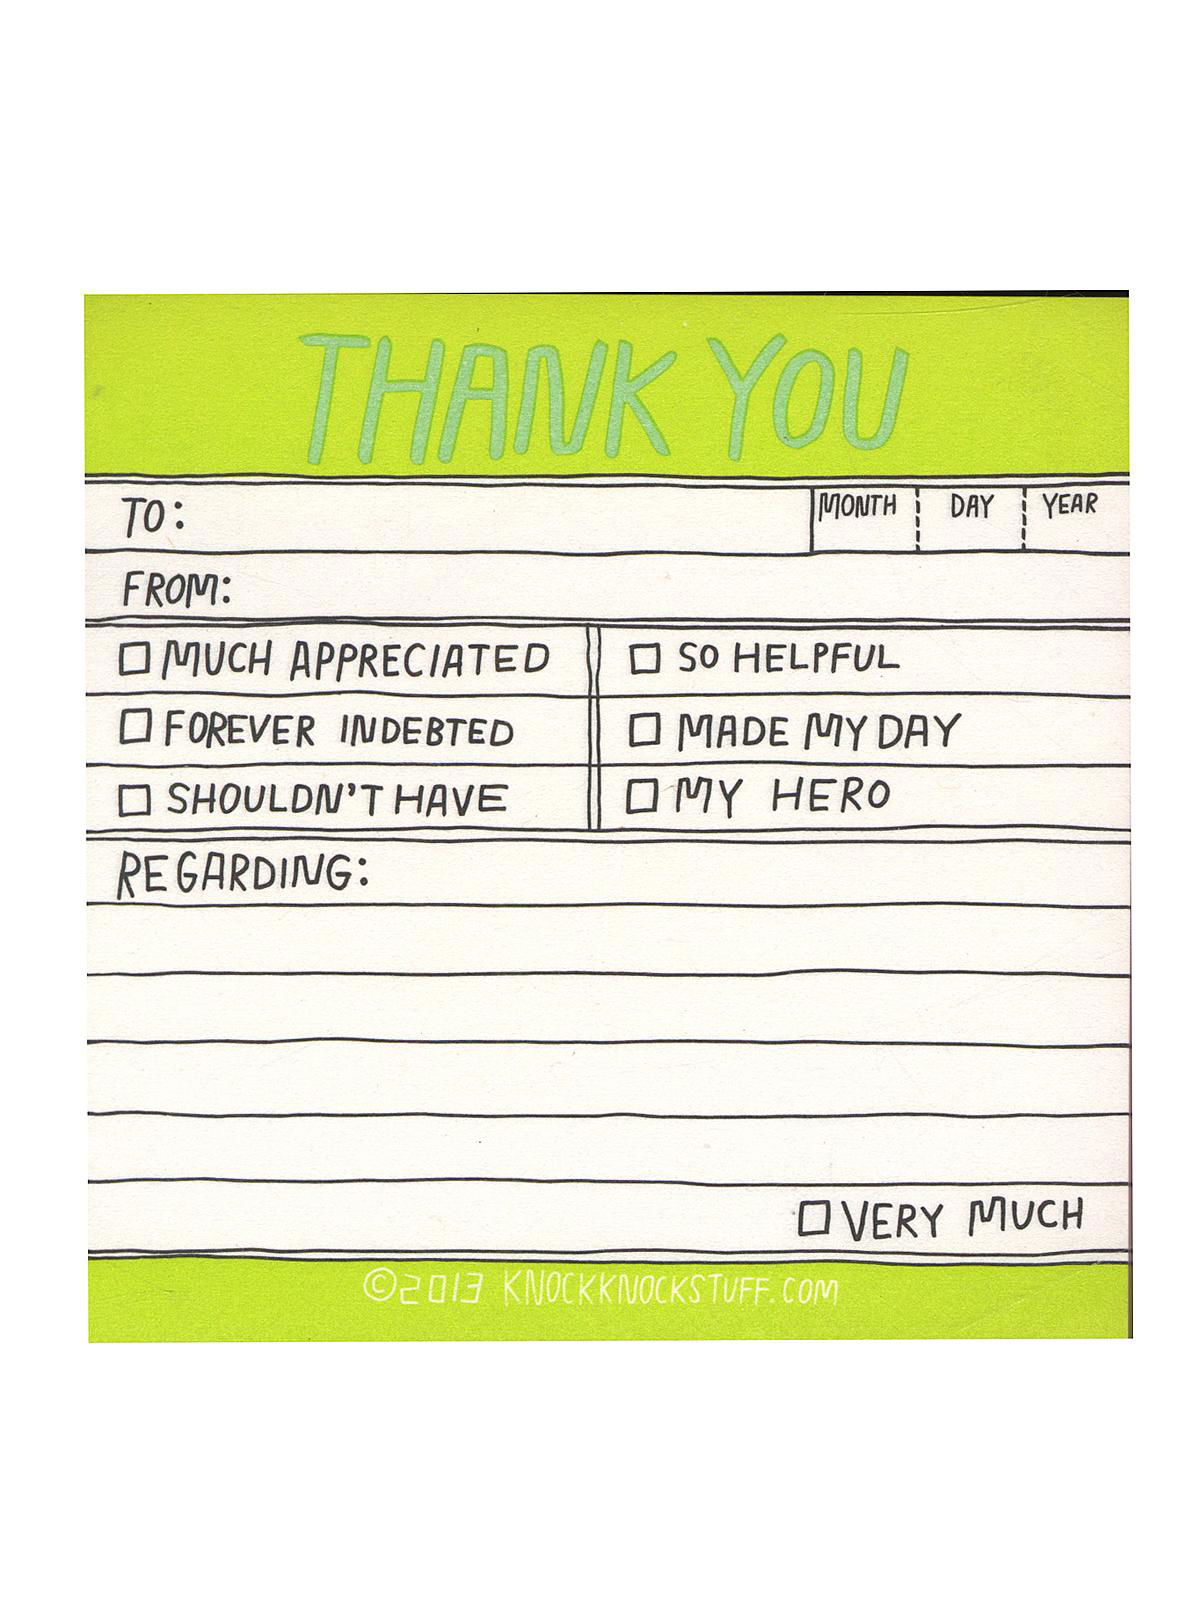 THANK YOU
TO: MONTH DAY YEAR
FROM:
MUCH APPRECIATED SO HELPFUL
FOREVER INDEBTED MADE MY DAY
SHOULDN'T HAVE MY HERO
REGARDING:
VERY MUCH
©2013 KNOCKKNOCKSTUFF.COM